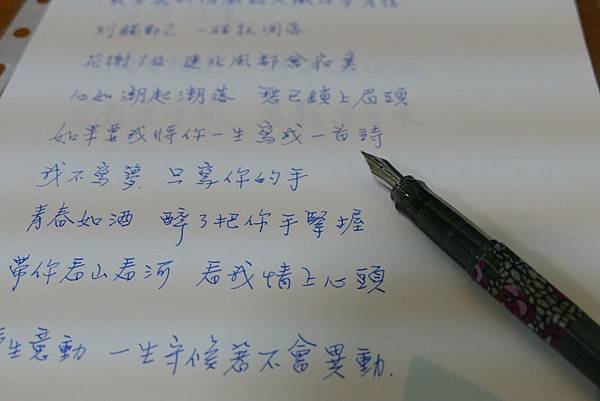 別騷動己 一碰就凋落
花謝了後 連北風都會寂寞
心如潮起潮落 愁已鎖上眉頭
如果要我將你一生寫成一首詩
我不寫夢 只寫你的手
青春如酒 醉了把你手緊握
帶你看山看河 看我情上心頭
生意動 一生守候著不會異動.